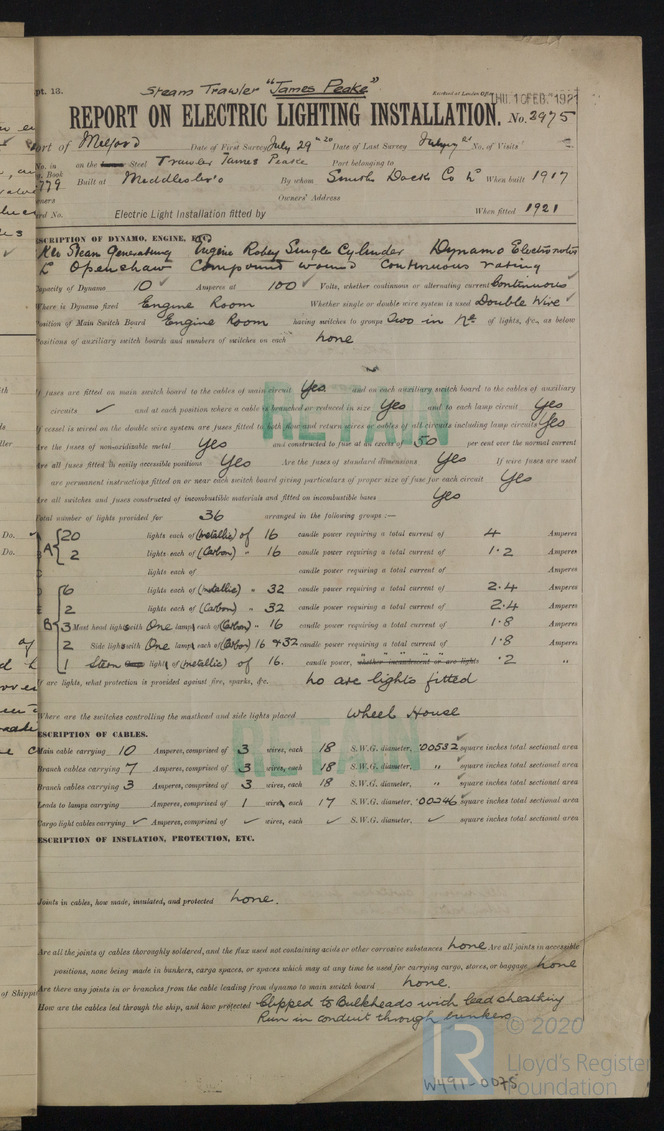 pt. 13.
Steam Trawler "James Peake"
Received at London Office THU. 10 FEB. 1921
REPORT ON ELECTRIC LIGHTING INSTALLATION. No. 2975
ort of Milford Date of First Survey July 29th 20 Date of Last Survey 21 No. of Visits
No. in on the Steel Trawler James Peake Port belonging to
Book
779 Built at Middlesbro By whom Smiths Dock Co Ld When built 1917
ners Owners' Address
rd No. Electric Light Installation fitted by When fitted 1921
ESCRIPTION OF DYNAMO, ENGINE, ETC.
Steam Generating Engine Robey Single Cylinder Dynamo Electromotors
Ld Openshaw Compound wound Continuous rating
Capacity of Dynamo 10 ✓ Amperes at 100 ✓ Volts, whether continuous or alternating current Continuous ✓
Where is Dynamo fixed Engine Room Whether single or double wire system is used Double Wire ✓
Position of Main Switch Board Engine Room having switches to groups Two in No of lights, &c., as below
Positions of auxiliary switch boards and numbers of switches on each none
If fuses are fitted on main switch board to the cables of main circuit Yes and on each auxiliary switch board to the cables of auxiliary
circuits ✓ and at each position where a cable is branched or reduced in size Yes and to each lamp circuit Yes
If vessel is wired on the double wire system are fuses fitted to both flow and return wires or cables of all circuits including lamp circuits Yes
Are the fuses of non-oxidizable metal Yes and constructed to fuse at an excess of 50 per cent over the normal current
Are all fuses fitted in easily accessible positions Yes Are the fuses of standard dimensions Yes If wire fuses are used
are permanent instructions fitted on or near each switch board giving particulars of proper size of fuse for each circuit Yes
Are all switches and fuses constructed of incombustible materials and fitted on incombustible bases Yes
Total number of lights provided for 36 arranged in the following groups :—
A 20 lights each of (metallic) of 16 candle power requiring a total current of 4 Amperes
2 lights each of (Carbon) " 16 candle power requiring a total current of 1.2 Amperes
lights each of candle power requiring a total current of Amperes
6 lights each of (metallic) " 32 candle power requiring a total current of 2.4 Amperes
2 lights each of (Carbon) " 32 candle power requiring a total current of 2.4 Amperes
B 3 Mast head lights with One lamp each of (Carbon) " 16 candle power requiring a total current of 1.8 Amperes
2 Side lights with One lamp each of (Carbon) 16 & 32 candle power requiring a total current of 1.8 Amperes
1 Stern light of (metallic) of 16. candle power, whether incandescent or arc lights .2 "
If arc lights, what protection is provided against fire, sparks, &c. no arc lights fitted
Where are the switches controlling the masthead and side lights placed Wheel House
ESCRIPTION OF CABLES.
Main cable carrying 10 Amperes, comprised of 3 wires, each 18 S.W.G. diameter, .00532 square inches total sectional area
Branch cables carrying 7 Amperes, comprised of 3 wires, each 18 S.W.G. diameter, " square inches total sectional area
Branch cables carrying 3 Amperes, comprised of 3 wires, each 18 S.W.G. diameter, " square inches total sectional area
Leads to lamps carrying Amperes, comprised of 1 wire, each 17 S.W.G. diameter, .00246 square inches total sectional area
Cargo light cables carrying ✓ Amperes, comprised of ✓ wires, each ✓ S.W.G. diameter, ✓ square inches total sectional area
ESCRIPTION OF INSULATION, PROTECTION, ETC.
Joints in cables, how made, insulated, and protected none.
Are all the joints of cables thoroughly soldered, and the flux used not containing acids or other corrosive substances none Are all joints in accessible
positions, none being made in bunkers, cargo spaces, or spaces which may at any time be used for carrying cargo, stores, or baggage none
Are there any joints in or branches from the cable leading from dynamo to main switch board none.
How are the cables led through the ship, and how protected Clipped to Bulkheads with lead sheathing
Run in conduit through bunkers
RETAIN
RETAIN
© 2020
LR Lloyd's Register
Foundation
W491-0075